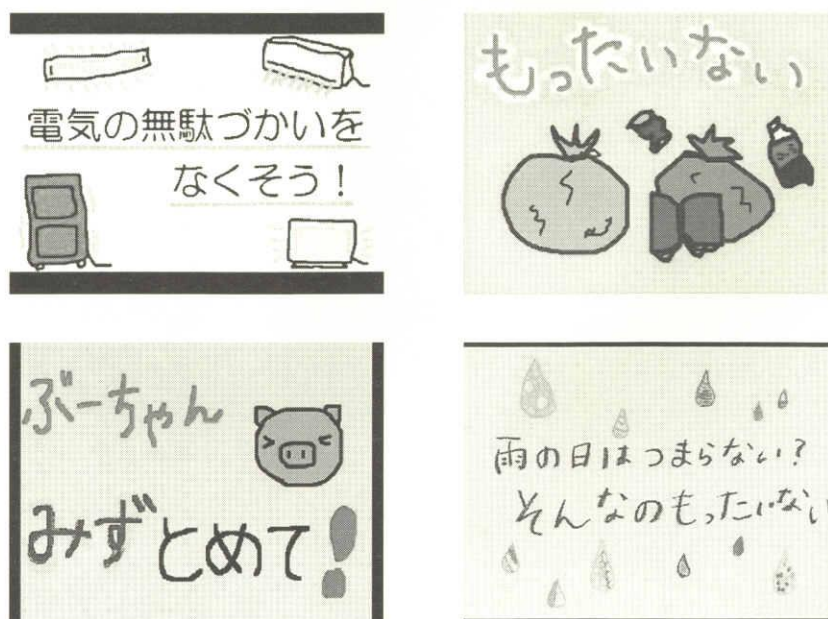 電気の無駄づかいを
なくそう！
もったいない
ぶーちゃん
みずとめて!
雨の日はつまらない?
そんなのもったいない